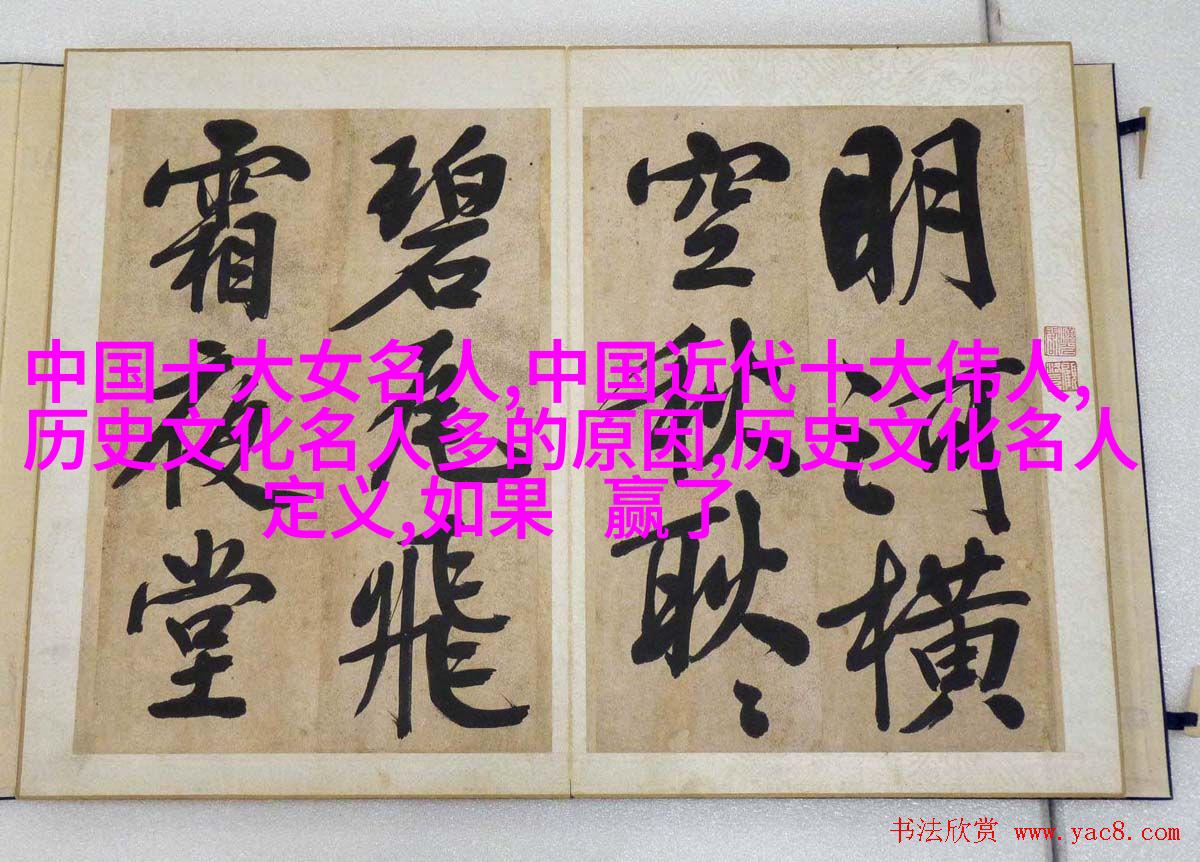 明河横
空秋耿々
碧瓦飛
霜夜堂
中国十大女名人,中国近代十大伟人,
历史文化名人多的原因,历史文化名人
定义,如果 赢了
书法欣赏 www.yac8.com